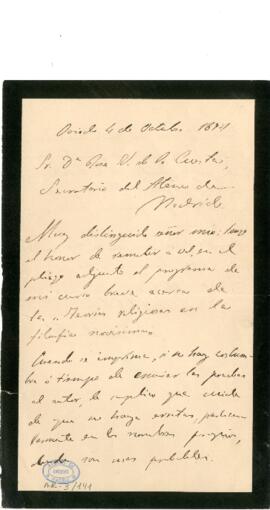 Oviedo 4 de Octubre 1894
Sr. Dn. de la Cuesta,
Secretario del Ateneo de
Madrid
Muy distinguido señor mio: tengo
el honor de remitir á vd, en el
pliego adjunto el programa de
mi curso breve acerca de
las Teorías religiosas en la
filosofía novísima.
Cuando se imprima, si no hay costum-
bre ó tiempo de enviar las pruebas
al autor, le suplico que cuide
de que no haya erratas, particu-
larmente en los nombres propios,
donde son mas probables.
AR-3/141